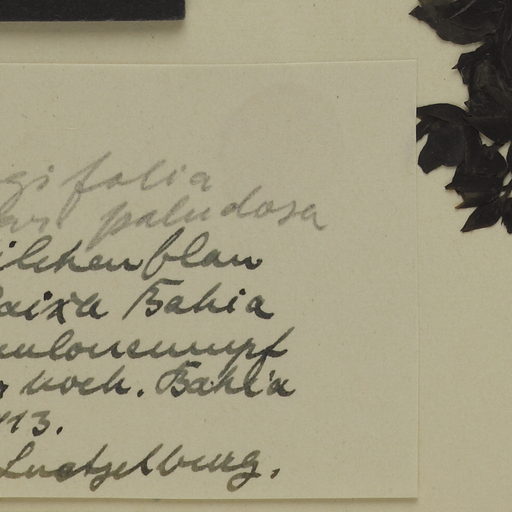 gifolia
var. paludosa
ilchenblau
Baixa Bahia
noch. Bahia
113.
Luetzelburg.